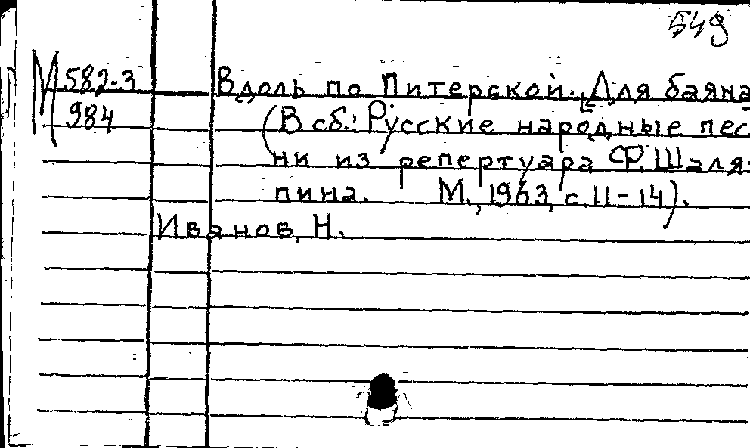 549
М 582-3
984
Вдоль по Питерской. Для баяна
(В сб.: Русские народные пес
ни из репертуара Ф. Шаля-
пина. М., 1963, с. 11-14).
Иванов, Н.